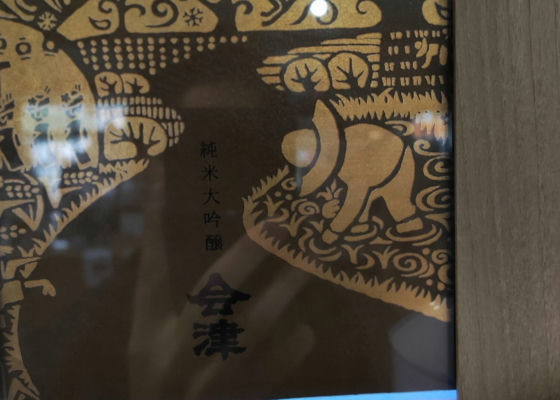 純米大吟醸
会津